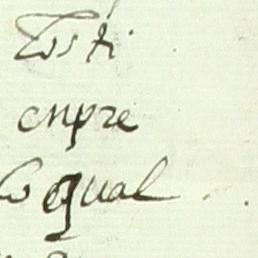 Tosti
cnpre
lo qual